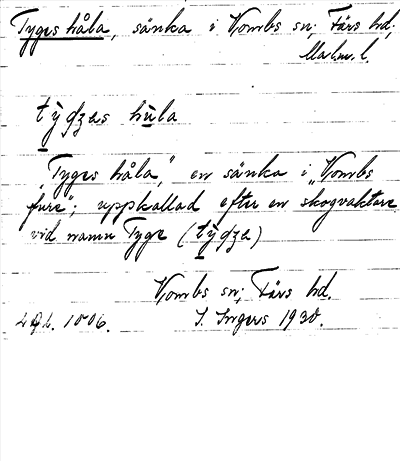 Tyges håla, sänka i Vombs sn; Färs hd;
Malm. l.
tỳdzas hùla
"Tyges håla," en sänka i "Vombs
fure"; uppkallad efter en skogvaktare
vid namn Tyge (tỳdza)
Vombs sn; Färs hd.
1006. I. Ingers 1930.